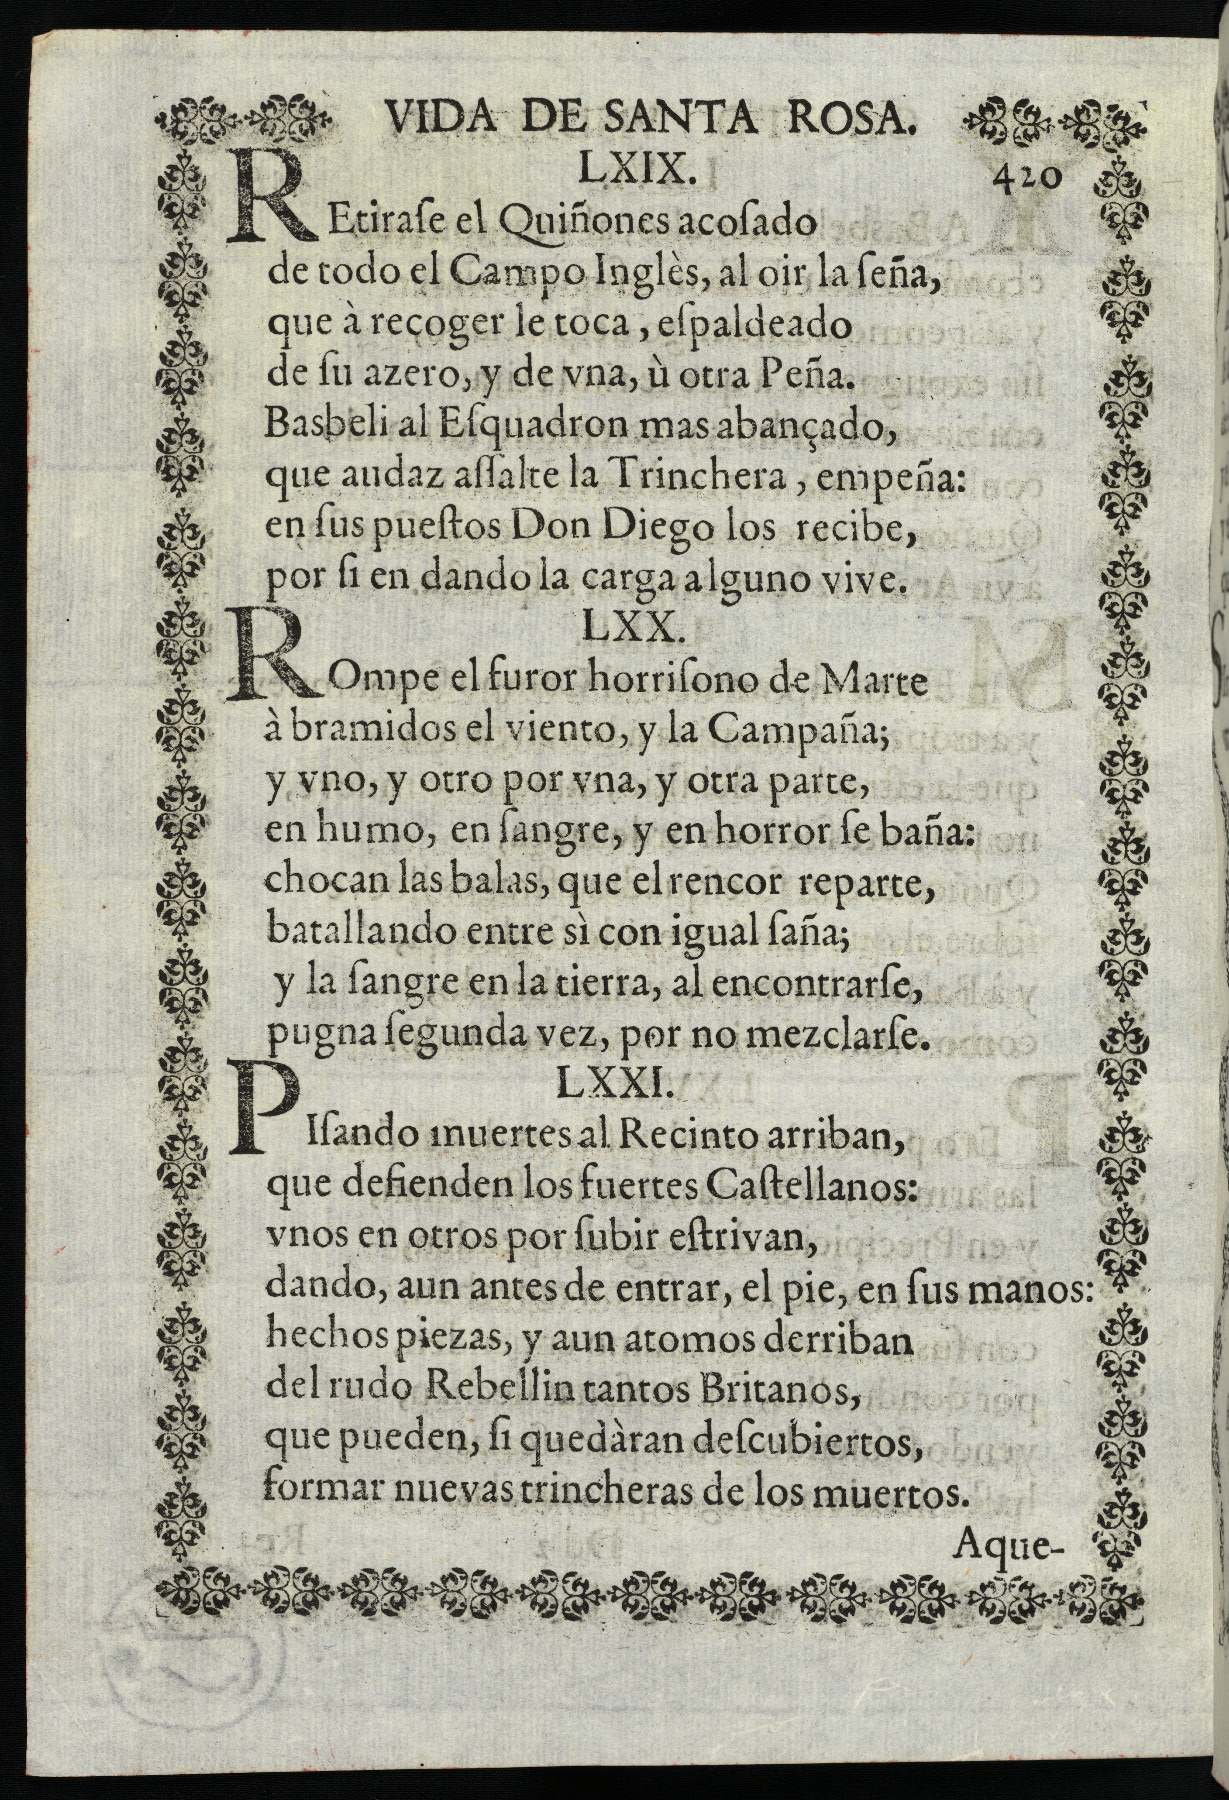 VIDA DE SANTA ROSA.
LXIX. 420
REtiraſe el Quiñones acoſado
de todo el Campo Inglès, al oir la ſeña,
que à recoger le toca, eſpaldeado
de ſu azero, y de vna, ù otra Peña.
Basbeli al Eſquadron mas abançado,
que audaz aſſalte la Trinchera, empeña:
en ſus pueſtos Don Diego los recibe,
por ſi en dando la carga alguno vive.
LXX.
ROmpe el furor horriſono de Marte
à bramidos el viento, y la Campaña;
y vno, y otro por vna, y otra parte,
en humo, en ſangre, y en horror ſe baña:
chocan las balas, que el rencor reparte,
batallando entre sì con igual ſaña;
y la ſangre en la tierra, al encontrarſe,
pugna ſegunda vez, por no mezclarſe.
LXXI.
PIſando muertes al Recinto arriban,
que defienden los fuertes Caſtellanos:
vnos en otros por ſubir eſtrivan,
dando, aun antes de entrar, el pie, en ſus manos:
hechos piezas, y aun atomos derriban
del rudo Rebellin tantos Britanos,
que pueden, ſi quedàran deſcubiertos,
formar nuevas trincheras de los muertos.
Aque-